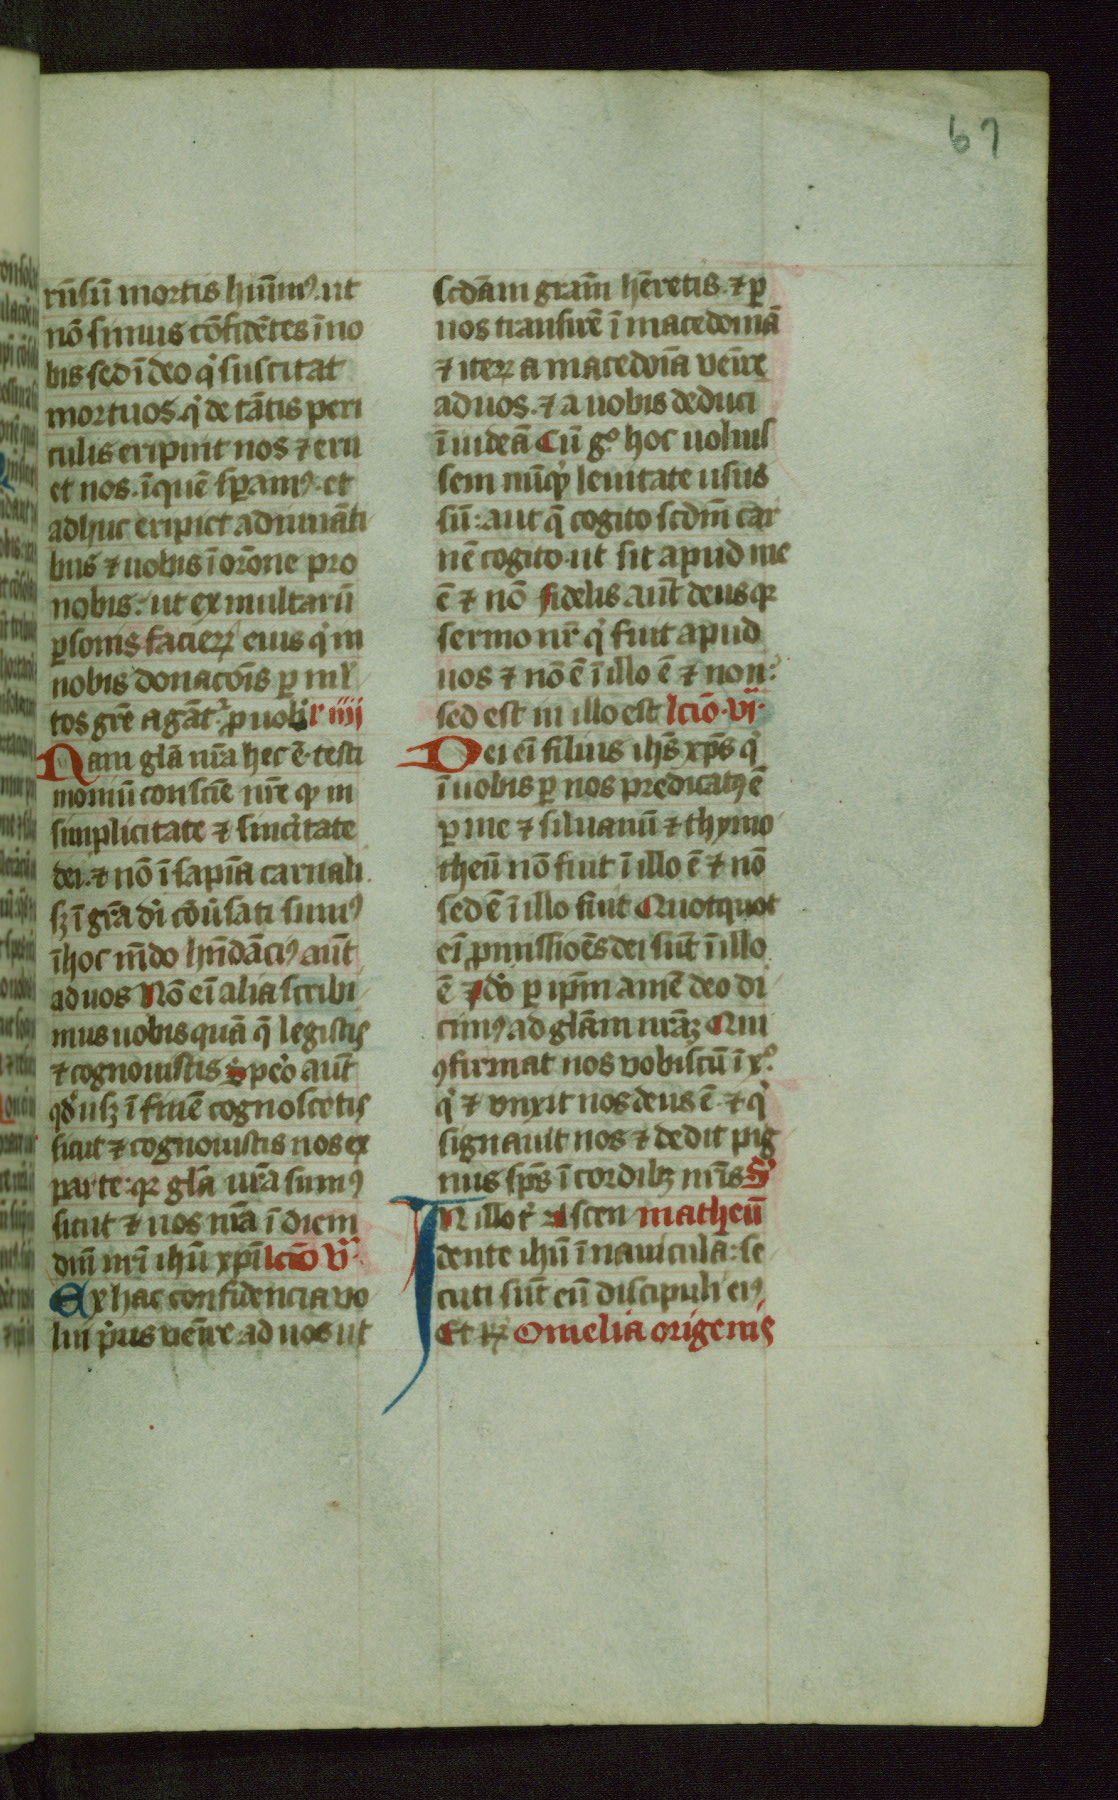 67
rñsũ mortis huĩmꝰ. ut
nõ simus cõfidẽtes ĩ no
bis sed ĩ deo q̇ suscitat
mortuos. q̇ de tãtis peri
culis eripuit nos ⁊ eru
et nos. ĩ quẽ sꝑamꝰ. et
adhuc eripiet adiuuãti
bus ⁊ uobis ĩ orõne pro
nobis. ut ex multarũ
ꝑsonis facieꝝ eius q̇ in
nobis donacõis ꝑ ml̃
tos grẽ agãt᷑ ꝓ nobis l iiij
Nam glã nr̃a hec ẽ. testi
moniũ consciẽ nr̃e ꝙ in
simplicitate ⁊ sinc̃itate
dei. ⁊ nõ ĩ sapĩa carnali.
sꝫ ĩ gr̃a dĩ cõũsati sumꝰ
ĩ hoc mũdo hñdãciꝰ aut̃
ad uos Nõ eĩ alia scribi
mus uobis quã q̃ legistis
⁊ cognouistis Spẽo aut̃
qd̃ usꝫ ĩ finẽ cognoscetis
sicut ⁊ cognouistis nos ex
parte. qꝛ glã ur̃a sumꝰ
sicut ⁊ uos nr̃a ĩ diem
dnĩ nr̃i ihũ xpĩ lcĩo v̈
Ex hac confidencia uo
lui p̃us uenĩre ad uos ut
scdãm grãm hẽretis. ⁊ ꝑ
uos transirẽ ĩ macedoniã
⁊ iteꝝ a macedoĩa uenĩre
ad uos. ⁊ a uobis deduci
ĩ iudeã Cũ gͦ hoc uoluis
sem nũqd̃ leuitate usus
sũ: aut q̃ cogito scdm̃ car
nẽ cogito. ut sit apud me
ẽ ⁊ nõ fidelis aut̃ deus qꝛ
sermo nr̃ q̇ fuit apud
uos ⁊ nõ ẽ ĩ illo ẽ ⁊ non.
sed est in illo est lcĩo. vj.
Dei eĩ filius ihs̃ xps̃ q̇
ĩ uobis ꝑ nos predicatꝰ ẽ
ꝑ me ⁊ siluanũ ⁊ thymo
theũ nõ fuit ĩ illo ẽ ⁊ nõ
sed ẽ ĩ illo fuit Quotquot
eĩ ꝓmissiões dei sũt ĩ illo
ẽ Idõ ꝑ ipm̃ amẽ deo di
cimꝰ ad glãm nr̃aꝫ Qui
ꝯfirmat nos vobiscũ ĩ xͦ.
q̇ ⁊ vnxit nos deus ẽ. ⁊ q̇
signauit nos ⁊ dedit pig
nus sps̃ ĩ cordibꝫ nr̃is S
In illo t̃ Ascen matheũ
dente ihũ ĩ nauicula: se
cuti sũt eũ discipuli eiꝰ
Et rꝫ Omelia origenis